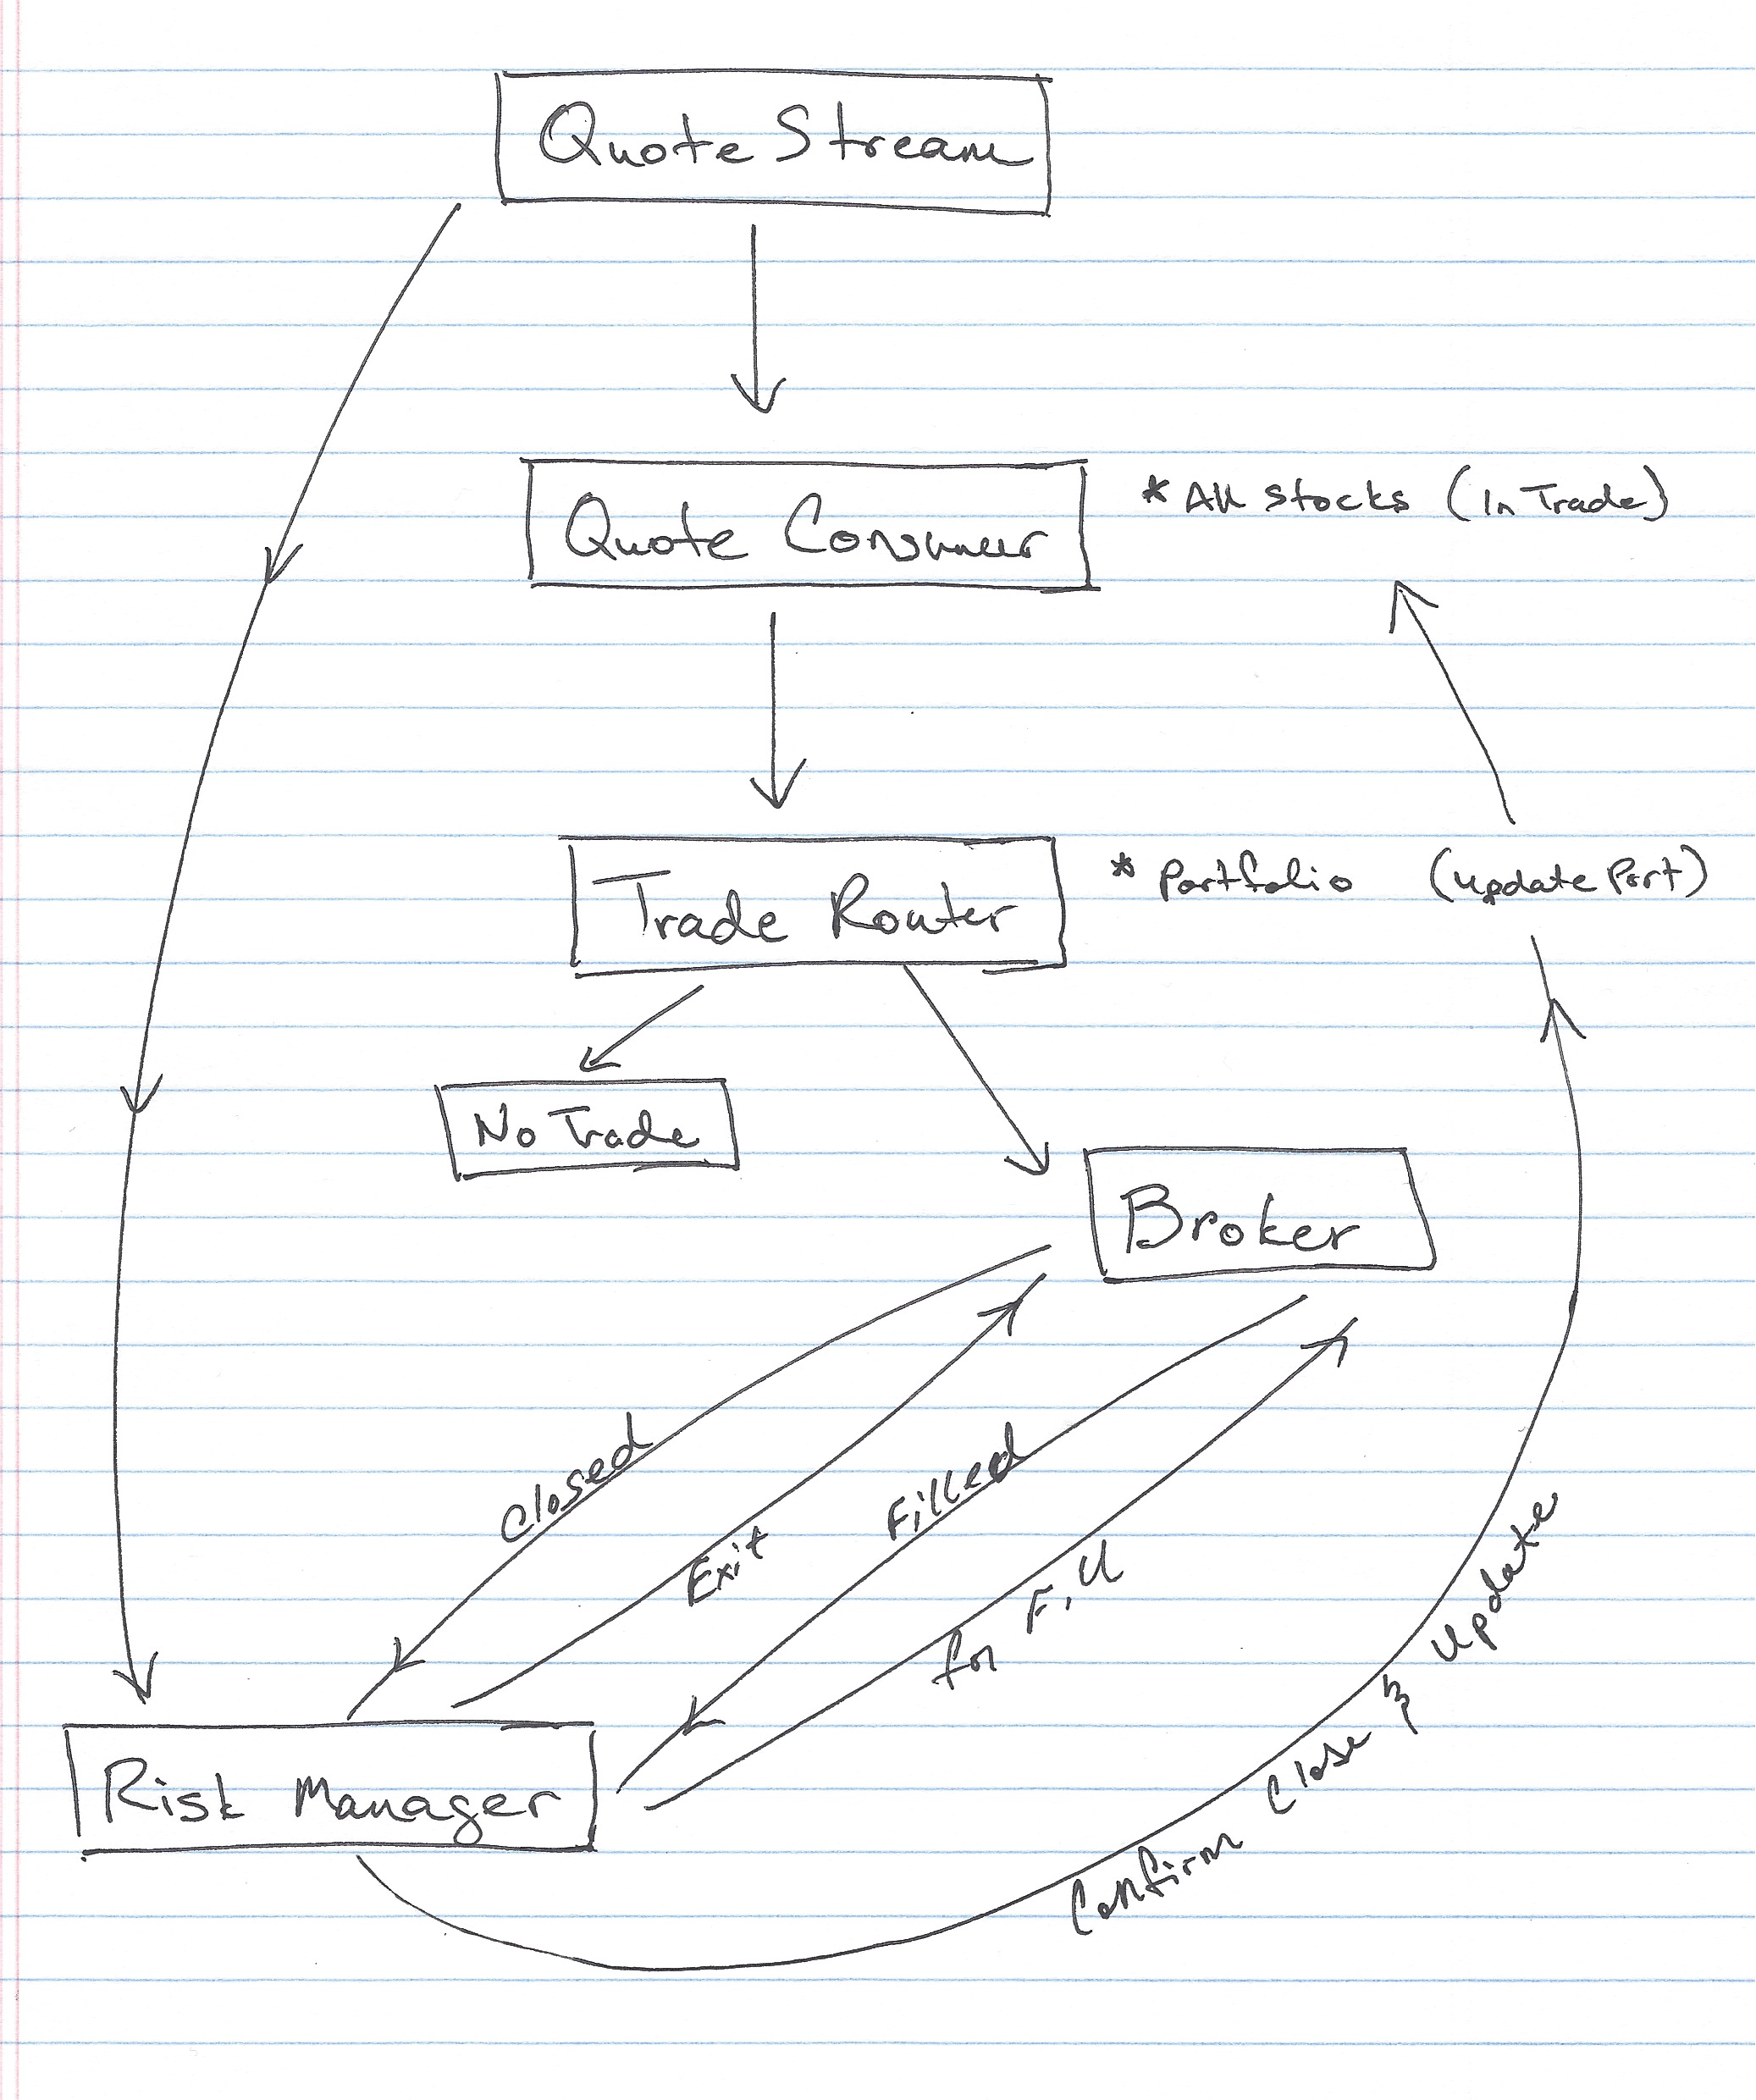 Quote Stream
Quote Consumer
* All stocks (In Trade)
Trade Router
* Portfolio (update Port)
No Trade
Broker
Closed
Exit
Filled
for Fill
Risk Manager
Confirm Close & Update